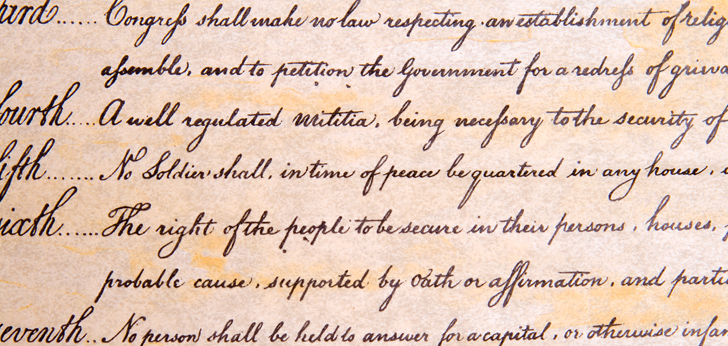 hird...... Congreſs shall make no law respecting an establishment of relig
aſsemble, and to petition the Government for a redreſs of grieva
ourth..... A well regulated militia, being neceſsary to the security of
ifth....... No Soldier shall, in time of peace be quartered in any house,
ixth...... The right of the people to be secure in their persons, houses,
probable cause, supported by Oath or affirmation, and parti
eventh.. No person shall be held to answer for a capital, or otherwise infam